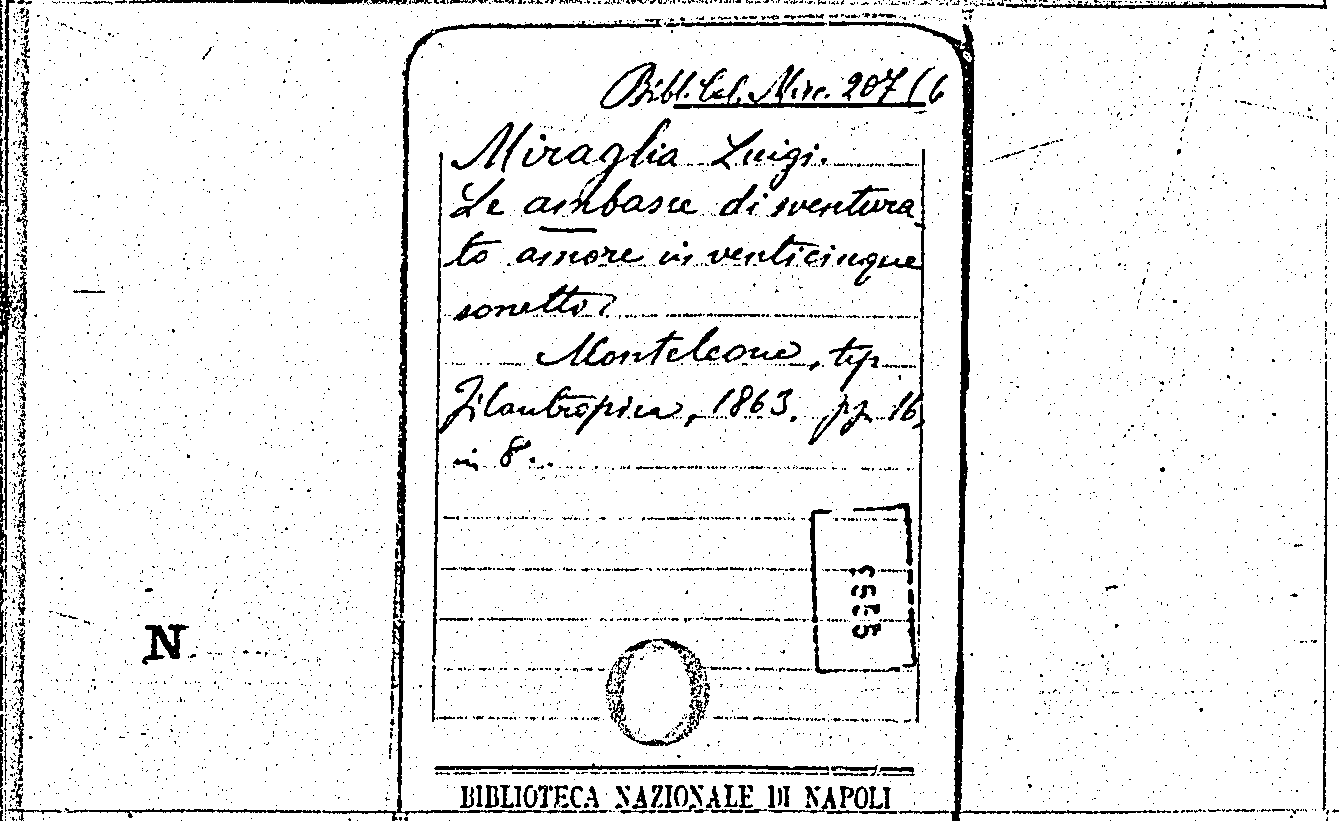 Bibl. Cal. Misc. 207 (6
Miraglia Luigi.
Le ambasce di sventura
to amore in venticinque
sonetti
Monteleone, tip.
Filantropica, 1863. pp. 16,
in 8°.
N
BIBLIOTECA NAZIONALE DI NAPOLI